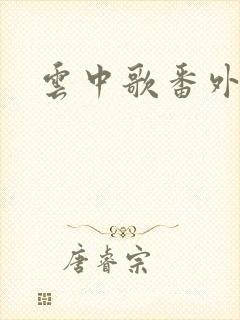 雲中歌番外
唐睿宗